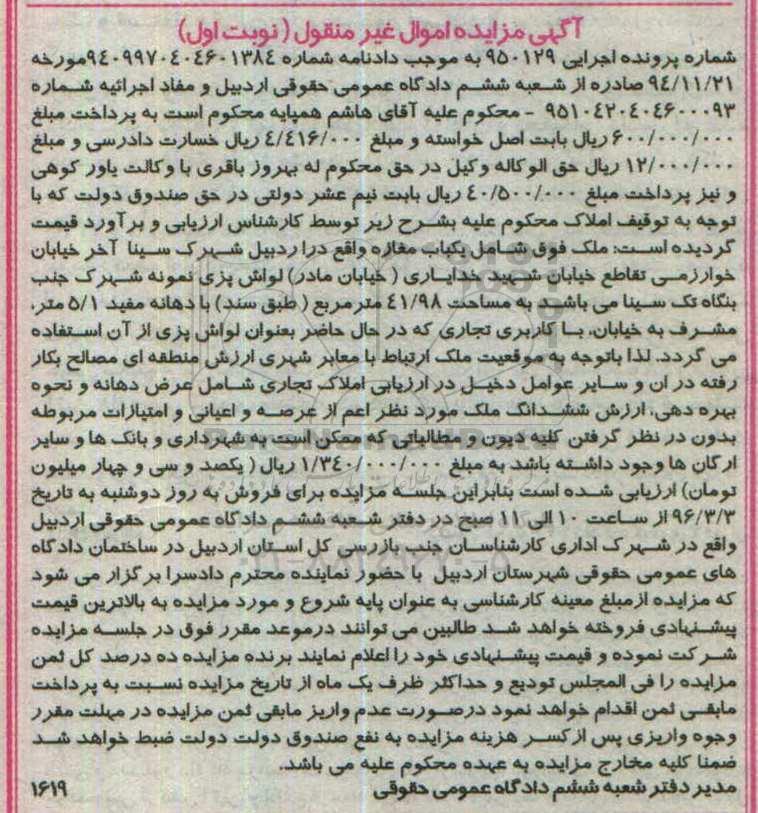 آگهی مزایده اموال غیر منقول ( نوبت اول)
شماره پرونده اجرایی ۹۵۰۱۲۹ به موجب دادنامه شماره ۹۴۰۹۹۷۰۴۰۴۶۰۱۳۸۴مورخه
۹۴/۱۱/۲۱ صادره از شعبه ششم دادگاه عمومی حقوقی اردبیل و مفاد اجرائیه شماره
۹۵۱۰۴۲۰۴۰۴۶۰۰۰۹۳ - محکوم علیه آقای هاشم همپایه محکوم است به پرداخت مبلغ
۶۰۰/۰۰۰/۰۰۰ ریال بابت اصل خواسته و مبلغ ۴/۴۱۶/۰۰۰ ریال خسارت دادرسی و مبلغ
۱۲/۰۰۰/۰۰۰ ریال حق الوکاله وکیل در حق محکوم له بهروز باقری با وکالت یاور کوهی
و نیز پرداخت مبلغ ۴۰/۵۰۰/۰۰۰ ریال بابت نیم عشر دولتی در حق صندوق دولت که با
توجه به توقیف املاک محکوم علیه بشرح زیر توسط کارشناس ارزیابی و برآورد قیمت
گردیده است: ملک فوق شامل یکباب مغازه واقع درا ردبیل شهرک سینا آخر خیابان
خوارزمی تقاطع خیابان شهید خدایاری ( خیابان مادر) لواش پزی نمونه شهرک جنب
بنگاه تک سینا می باشد به مساحت ۴۱/۹۸ مترمربع ( طبق سند) با دهانه مفید ۵/۱ متر،
مشرف به خیابان، با کاربری تجاری که در حال حاضر بعنوان لواش پزی از آن استفاده
می گردد. لذا باتوجه به موقعیت ملک ارتباط با معابر شهری ارزش منطقه ای مصالح بکار
رفته در ان و سایر عوامل دخیل در ارزیابی املاک تجاری شامل عرض دهانه و نحوه
بهره دهی، ارزش ششدانگ ملک مورد نظر اعم از عرصه و اعیانی و امتیازات مربوطه
بدون در نظر گرفتن کلیه دیون و مطالباتی که ممکن است به شهرداری و بانک ها و سایر
ارگان ها وجود داشته باشد به مبلغ ۱/۳۴۰/۰۰۰/۰۰۰ ریال ( یکصد و سی و چهار میلیون
تومان) ارزیابی شده است بنابراین جلسه مزایده برای فروش به روز دوشنبه به تاریخ
۹۶/۳/۳ از ساعت ۱۰ الی ۱۱ صبح در دفتر شعبه ششم دادگاه عمومی حقوقی اردبیل
واقع در شهرک اداری کارشناسان جنب بازرسی کل استان اردبیل در ساختمان دادگاه
های عمومی حقوقی شهرستان اردبیل با حضور نماینده محترم دادسرا برگزار می شود
که مزایده ازمبلغ معینه کارشناسی به عنوان پایه شروع و مورد مزایده به بالاترین قیمت
پیشنهادی فروخته خواهد شد طالبین می توانند درموعد مقرر فوق در جلسه مزایده
شرکت نموده و قیمت پیشنهادی خود را اعلام نمایند برنده مزایده ده درصد کل ثمن
مزایده را فی المجلس تودیع و حداکثر ظرف یک ماه از تاریخ مزایده نسبت به پرداخت
مابقی ثمن اقدام خواهد نمود درصورت عدم واریز مابقی ثمن مزایده در مهلت مقرر
وجوه واریزی پس ازکسر هزینه مزایده به نفع صندوق دولت دولت ضبط خواهد شد
ضمنا کلیه مخارج مزایده به عهده محکوم علیه می باشد.
مدیر دفتر شعبه ششم دادگاه عمومی حقوقی ۱۶۱۹